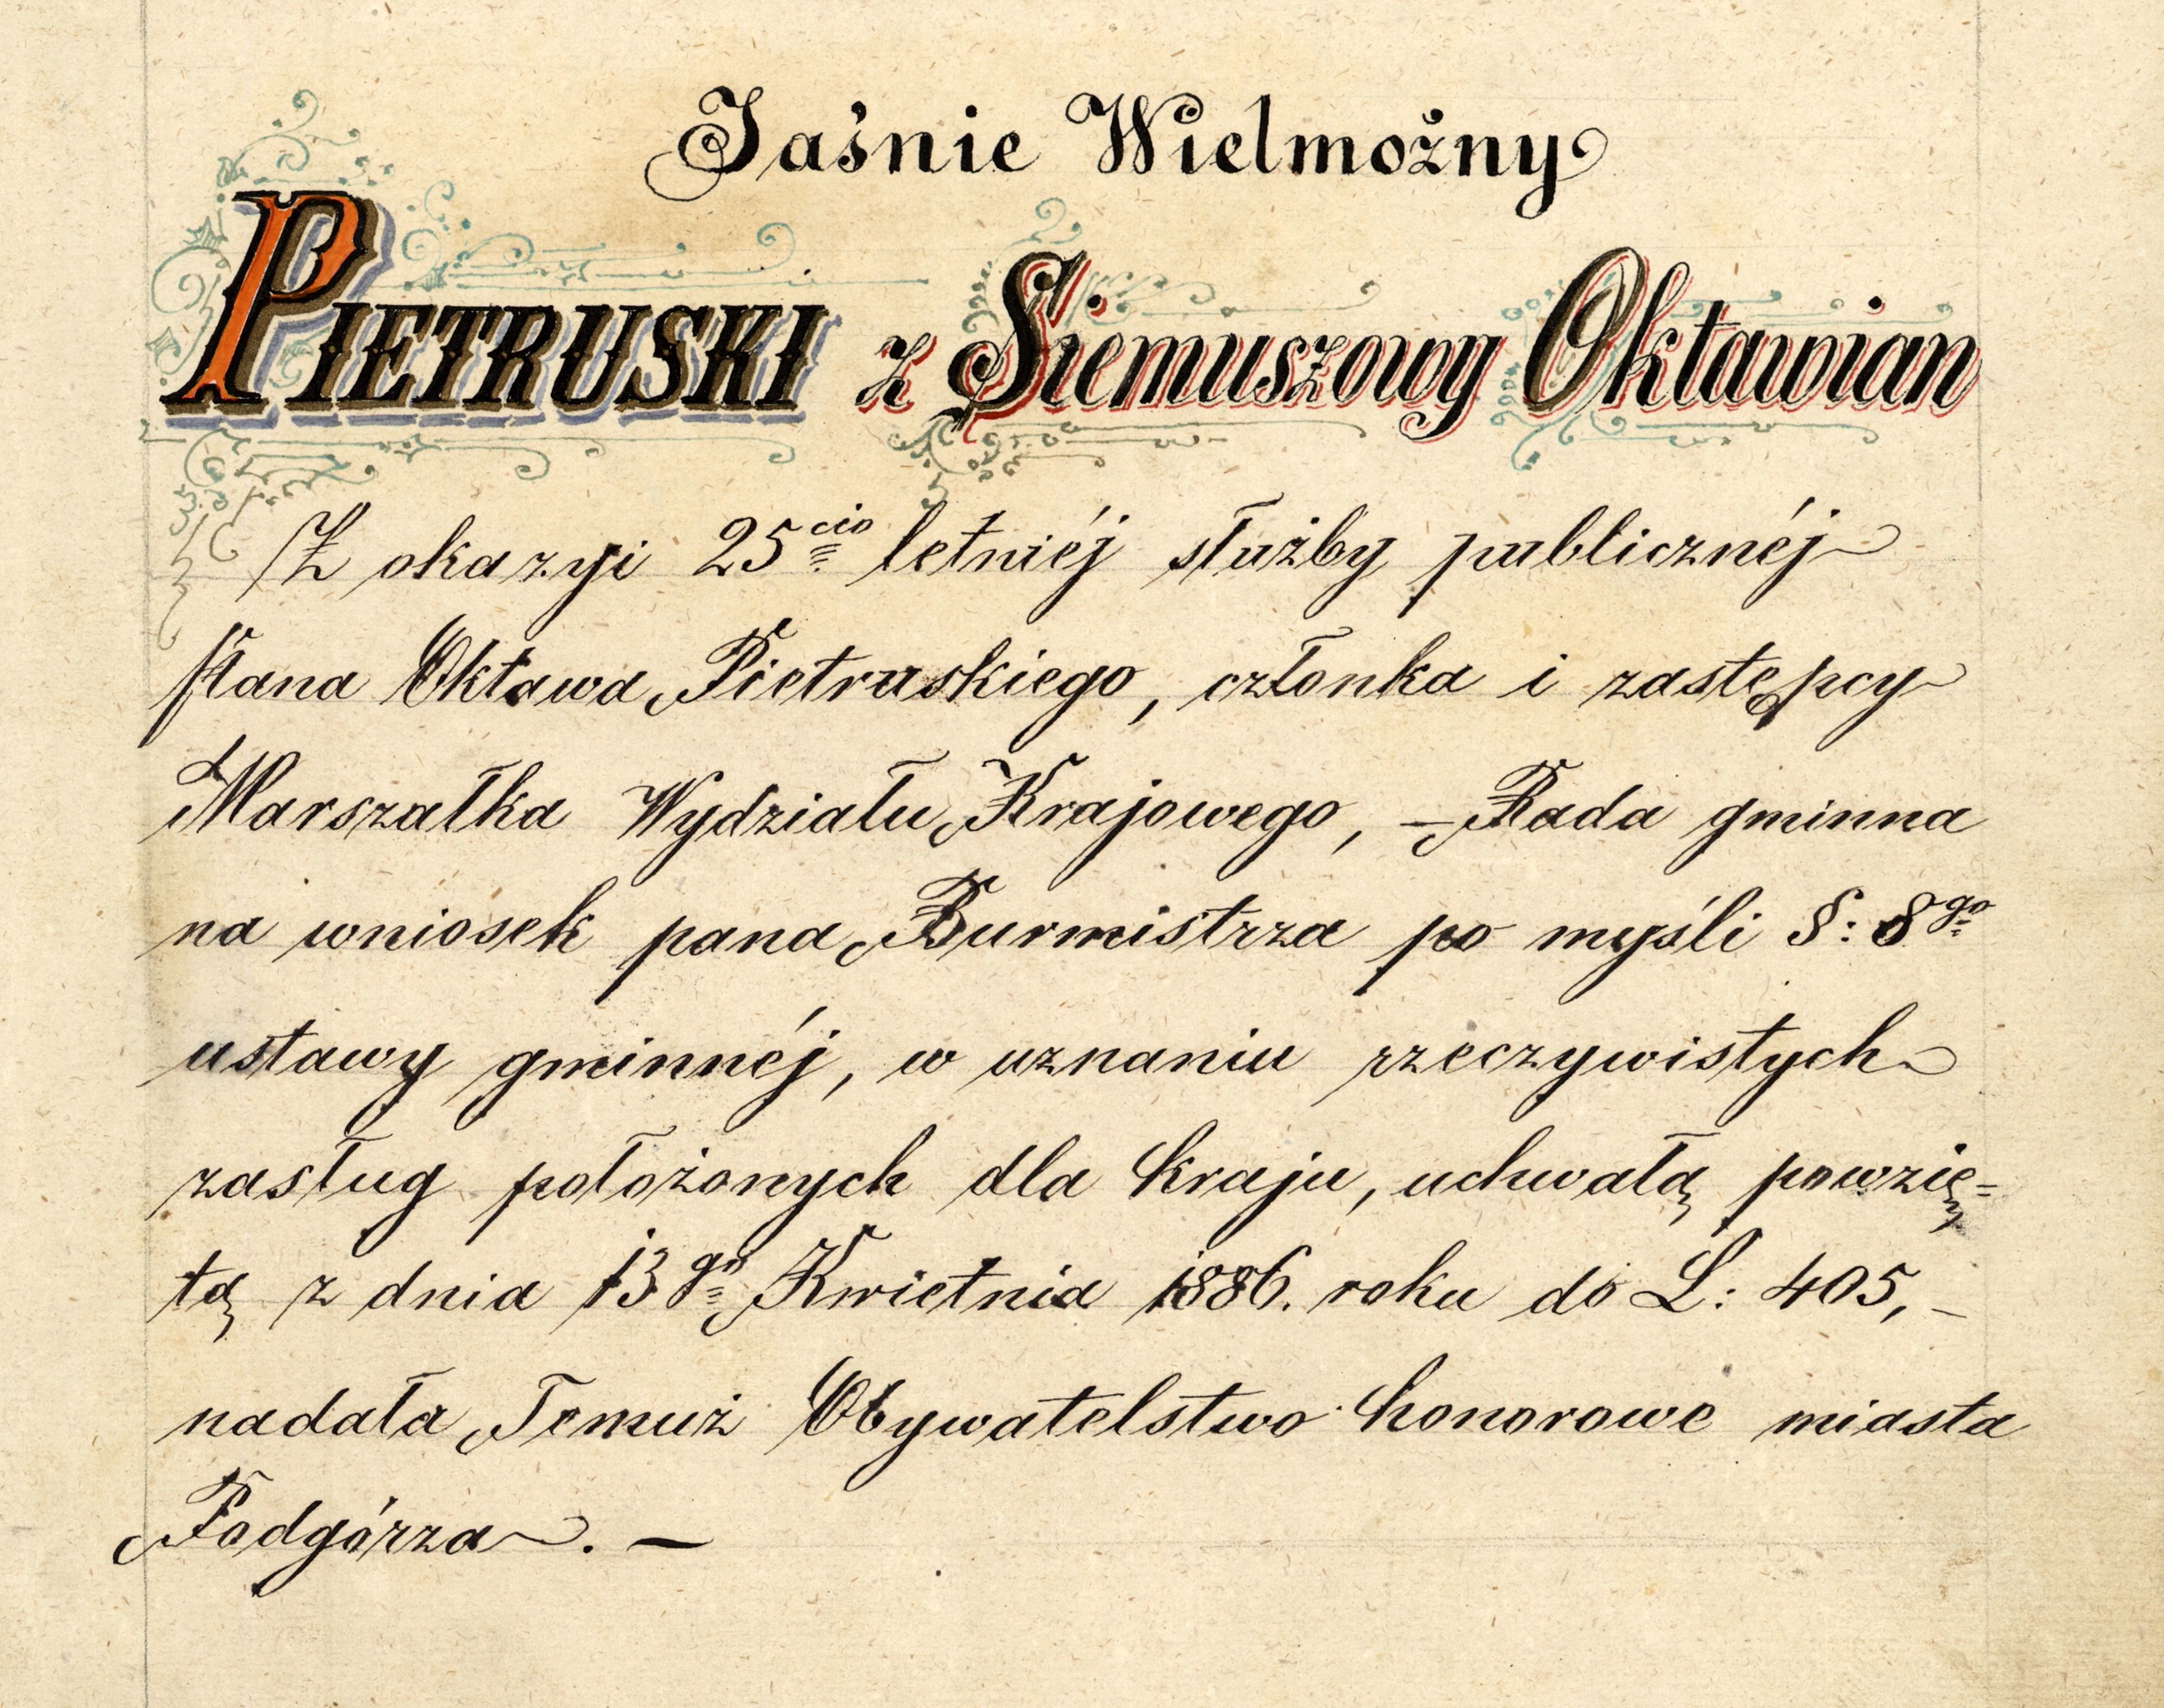 Jaśnie Wielmożny
PIETRUSKI z Siemuszowy Oktawian
Z okazyi 25cio letniéj służby publicznéj
Pana Oktawa Pietruskiego, członka i zastępcy
Marszałka Wydziału Krajowego, – Rada gminna
na wniosek pana Burmistrza po myśli §: 8go
ustawy gminnéj, w uznaniu rzeczywistych
zasług położonych dla kraju, uchwałą powzię=
tą z dnia 13go Kwietnia 1886. roku do L: 405, –
nadała Temuż Obywatelstwo honorowe miasta
Podgórza. –